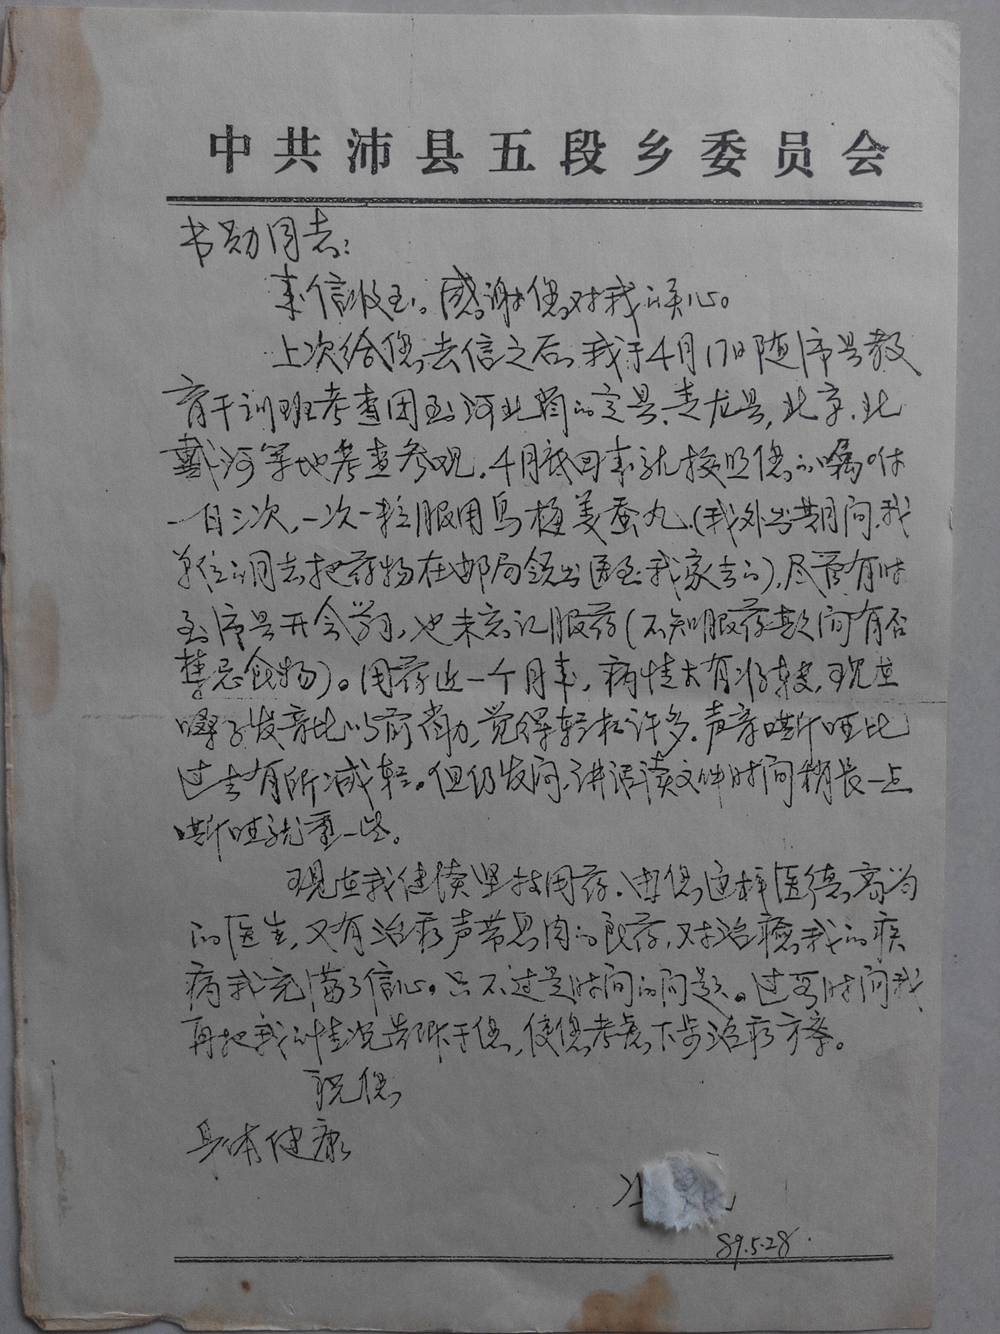 中共沛县五段乡委员会
书勋同志：
来信收到。感谢您对我的关心。
上次给您去信之后，我于4月17日随沛县教
育干训班考查团到河北省的定县、青龙县，北京、北
戴河等地考查参观。4月底回来就按照您的嘱咐
一日三次，一次一粒服用乌梅姜蚕丸（我外出期间，我
单位的同志把药物在邮局领出送到我家去的），尽管有时
到沛县开会学习，也未忘记服药（不知服药期间有否
禁忌食物）。用药近一个月来，病情大有好转，现在
嗓子发音比以前省力，觉得轻松许多。声音嘶哑比
过去有所减轻。但仍发闷，讲话读文件时间稍长一点
嘶哑就重一些。
现在我继续坚持用药。由您这样医德高尚
的医生，又有治疗声带息肉的良药，对治癒我的疾
病我充满了信心。只不过是时间的问题。过些时间我
再把我的情况告诉于您，使您考虑下步治疗方案。
祝您
身体健康
89.5.28.